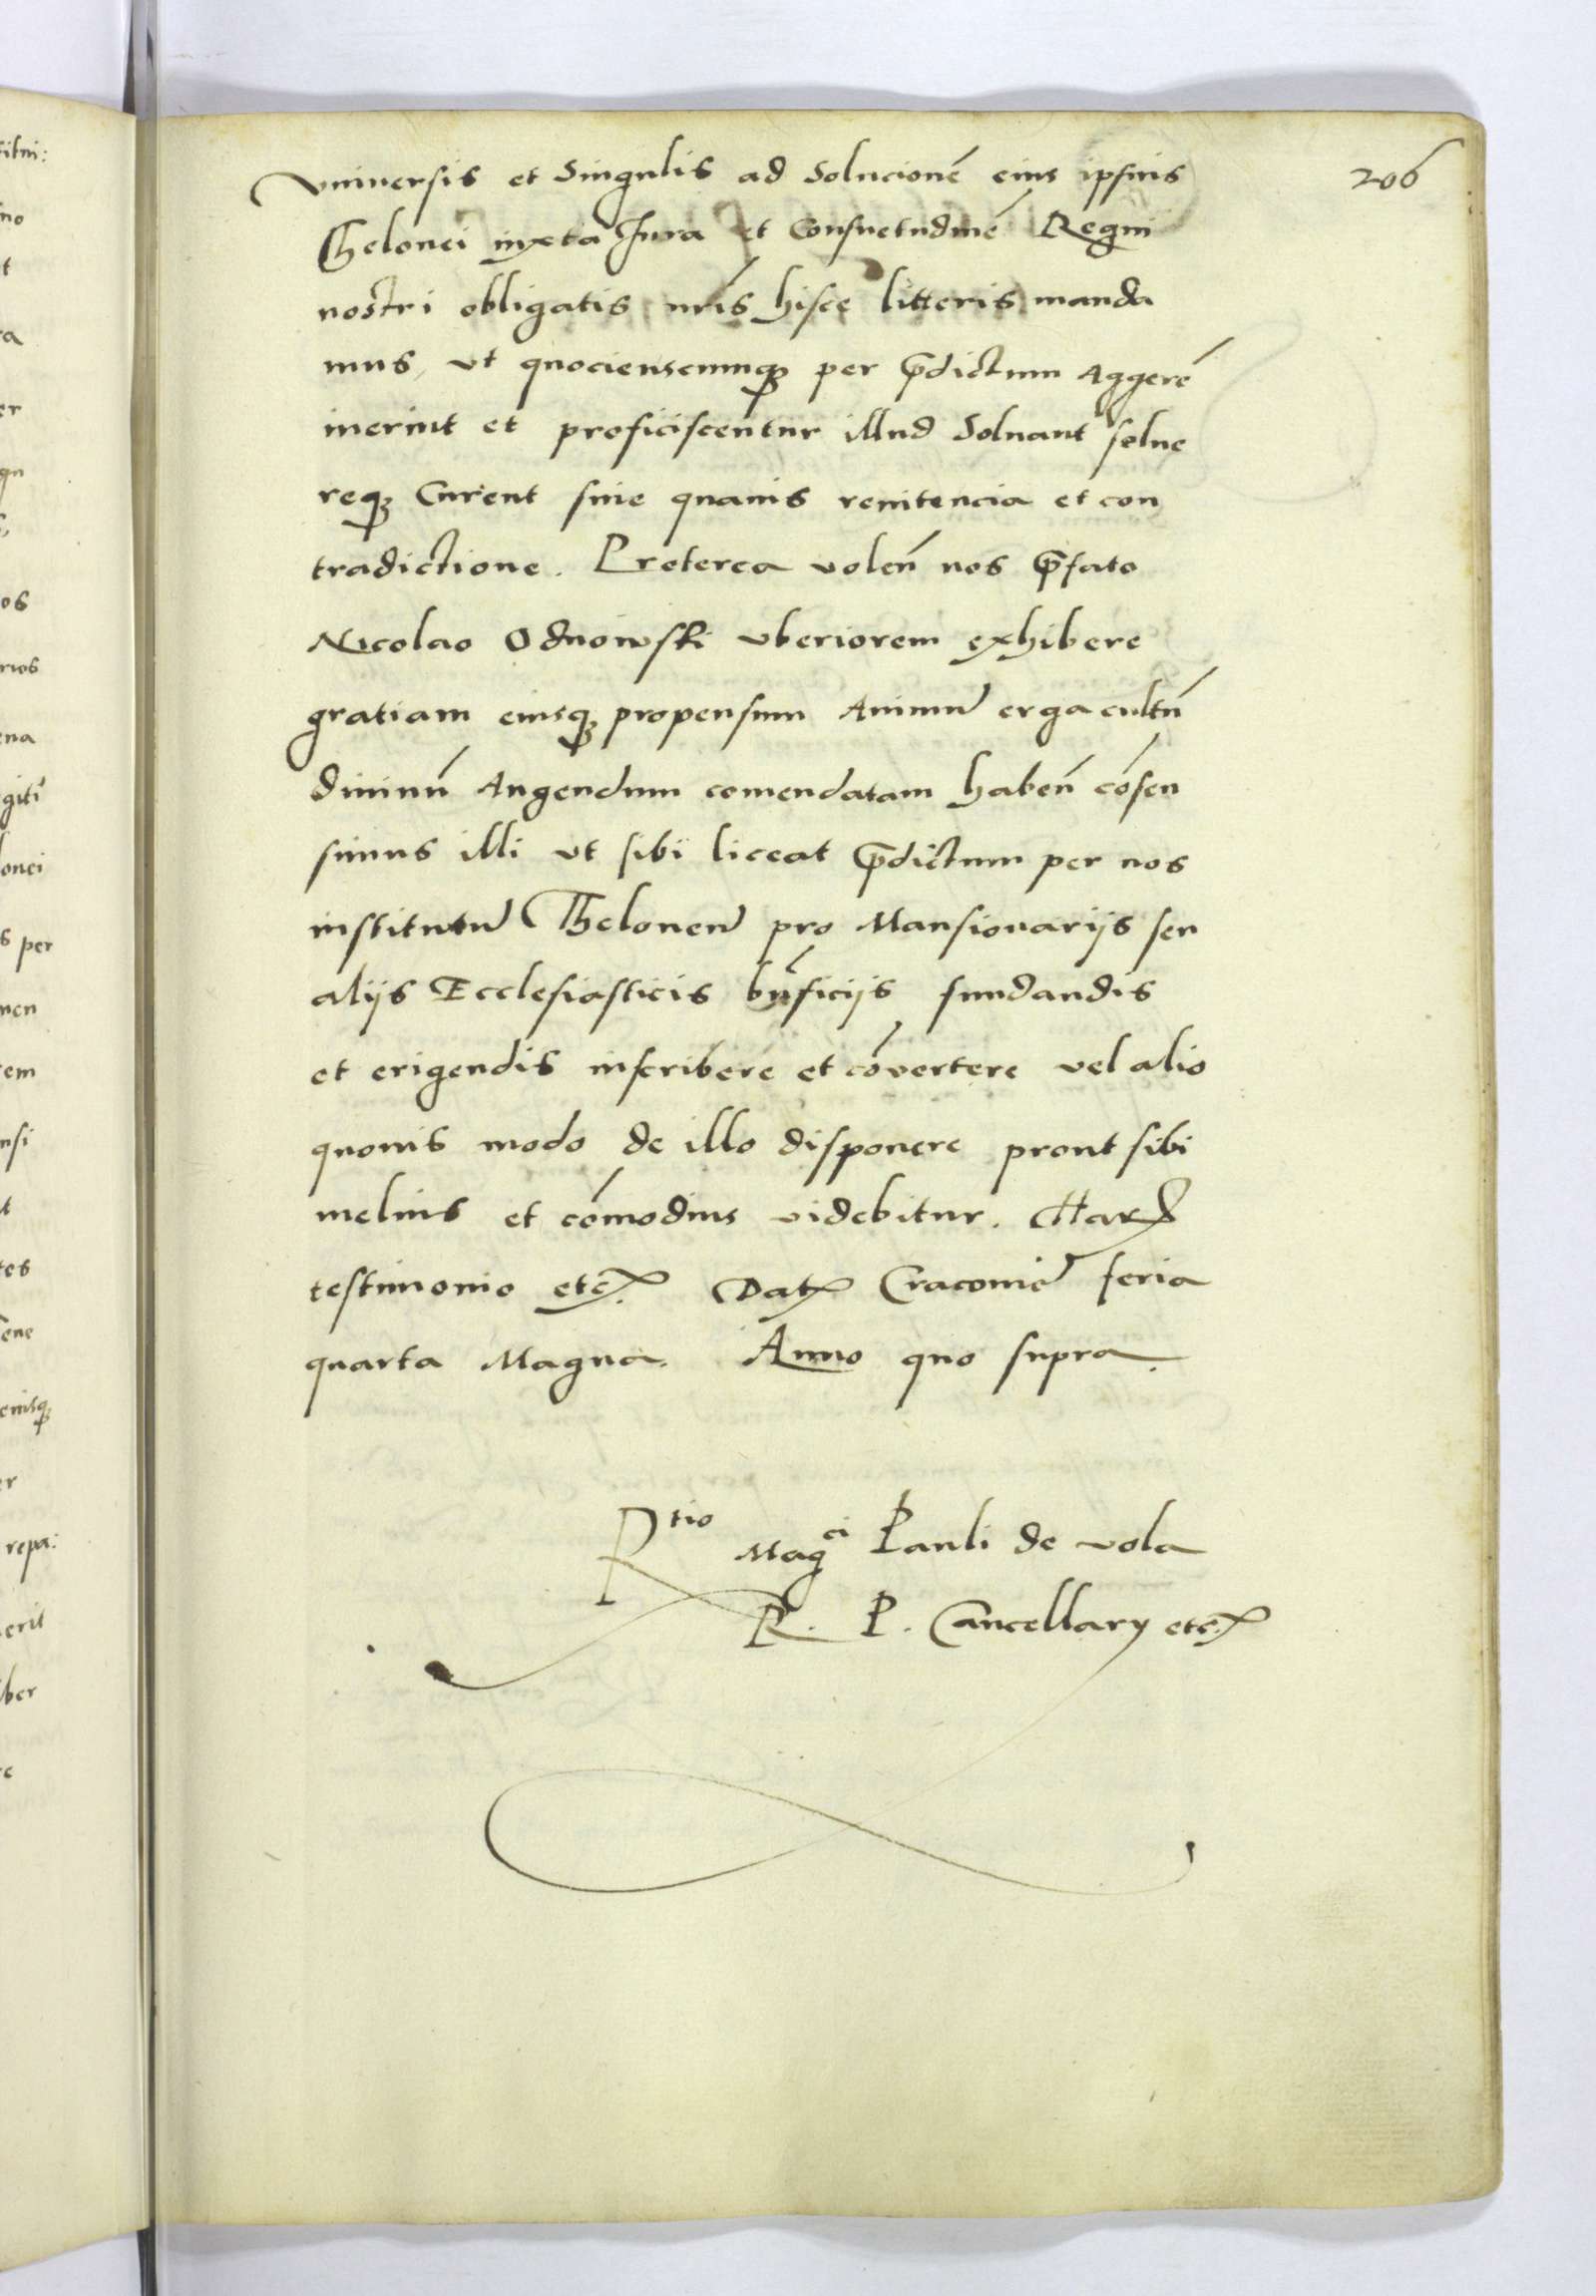 206
vniuersis et Singulis ad Solucionē eius ipsius
Thelonei iuxta Jura et Consuetudinē Regni
nostri obligatis nr̄is hisce litteris manda
mus, vt quocienscunqꝫ per p̄dictum Aggerē
inerint et proficiscentur illud Soluant solue
reqꝫ Curent sine quauis renitencia et con
tradictione. Preterea volen̄ nos p̄fato
Nicolao Odnowski vberiorem exhibere
gratiam eiusqꝫ propensum Animū erga cultū
diuinū Augendum comendatam haben̄ cōsen
simus illi vt sibi liceat p̄dictum per nos
institutū Theloneū pro Mansionarijs seu
alijs Ecclesiasticis bn̄ficijs fundandis
et erigendis inscribere et cōvertere vel alio
quouis modo de illo disponere prout sibi
melius et cōmodius videbitur. Harꝝ
testimonio etc. Datꝝ Cracouie feria
quarta Magna. Anno quo supra.
Rtio Magci Pauli de vola
R. P. Cancellary etc.